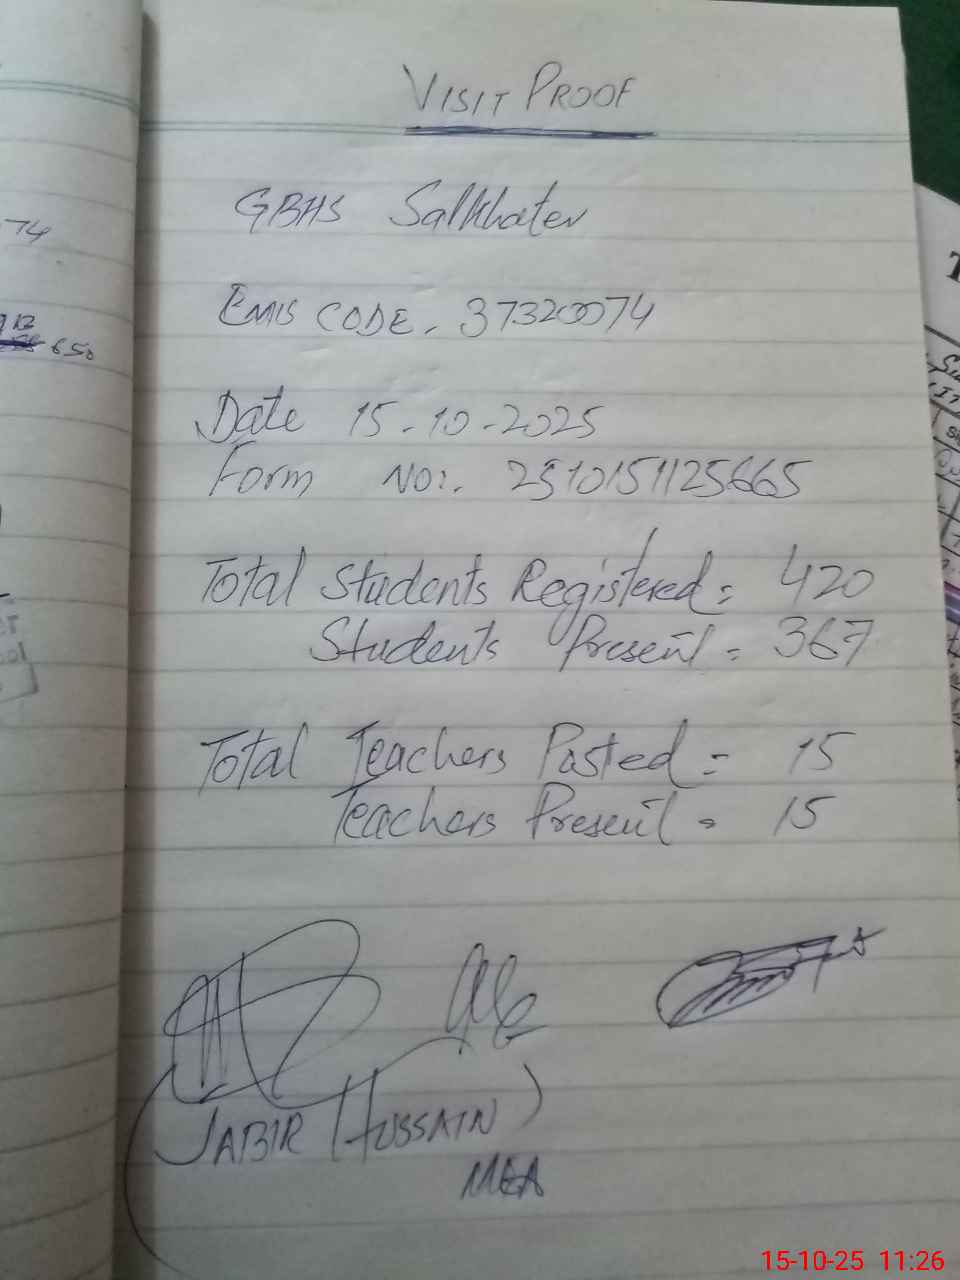 VISIT PROOF
GBHS Salkhater
EMIS CODE. 37320074
Date 15-10-2025
Form No:. 2510151125665
Total Students Registered = 420
Students Present = 367
Total Teachers Posted = 15
Teachers Present = 15
(JABIR HUSSAIN)
MEA
74
912
650
15-10-25 11:26